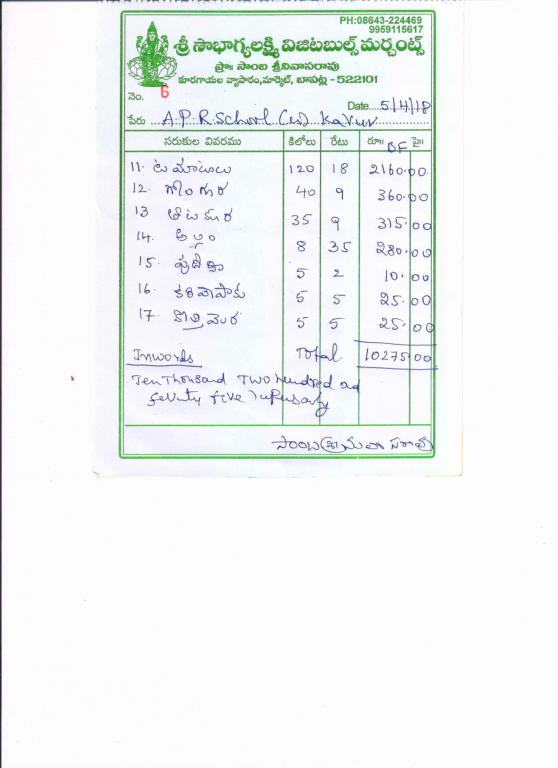 PH:08643-224469
9959115617
శ్రీ సౌభాగ్యలక్ష్మి విజిటబుల్స్ మర్చంట్స్
ప్రొః సాంబ శ్రీనివాసరావు
కూరగాయల వ్యాపారం,మార్కెట్, బాపట్ల - 522101
నెం. 6
Date....5/4/18
పేరు ...A.P.R.School (...) Kavur
సరుకుల వివరము కిలోలు రేటు రూ॥ పై॥
11. టమాటాలు 120 18 2160.00
12. గోంగూర 40 9 360.00
13 తోటకూర 35 9 315.00
14. అల్లం 8 35 280.00
15. పుదీనా 5 2 10.00
16. కరివేపాకు 5 5 25.00
17. కొత్తిమీర 5 5 25.00
Inwords Total 10275.00
Ten Thousand Two hundred
five